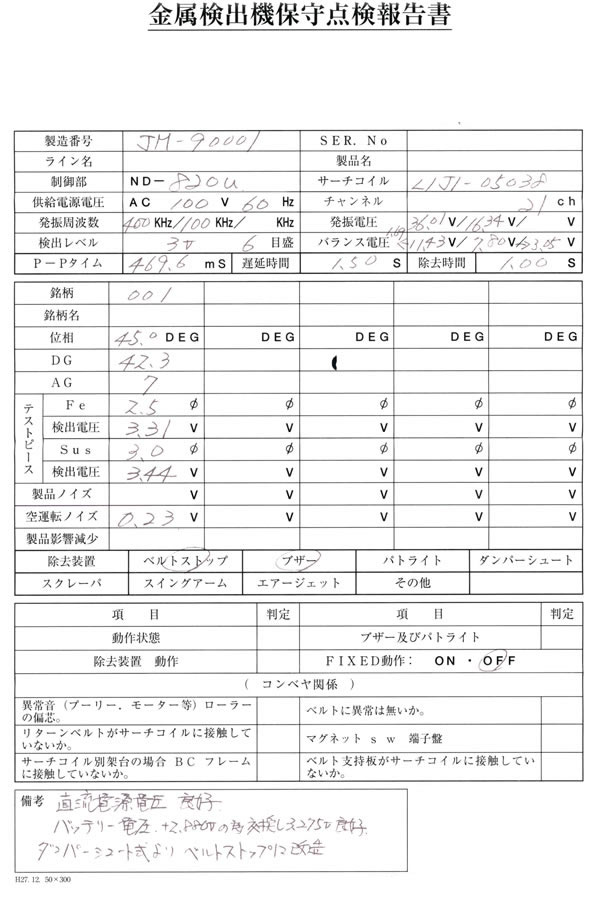 金属検出機保守点検報告書
製造番号 JM-90001 SER. No
ライン名 製品名
制御部 ND- 820U サーチコイル L1J1-05038
供給電源電圧 AC 100 V 60 Hz チャンネル 21 ch
発振周波数 400 KHz/100 KHz/ KHz 発振電圧 36.01 V/ 16.34 V/ V
検出レベル 3V 6 目盛 バランス電圧 11.43 V/ 7.80 V 3.05 V
P-Pタイム 469.6 mS 遅延時間 1.50 S 除去時間 1.00 S
銘柄 001
銘柄名
位相 45.0 DEG DEG DEG DEG DEG
DG 42.3
AG 7
テストピース
Fe 2.5 φ φ φ φ φ
検出電圧 3.31 V V V V V
Sus 3.0 φ φ φ φ φ
検出電圧 3.44 V V V V V
製品ノイズ V V V V V
空運転ノイズ 0.23 V V V V V
製品影響減少
除去装置 ベルトストップ ブザー パトライト ダンパーシュート
スクレーパ スイングアーム エアージェット その他
項 目 判定 項 目 判定
動作状態 ブザー及びパトライト
除去装置 動作 FIXED動作: ON ・ OFF
( コンベヤ関係 )
異常音(プーリー.モーター等)ローラーの偏芯。 ベルトに異常は無いか。
リターンベルトがサーチコイルに接触していないか。 マグネット sw 端子盤
サーチコイル別架台の場合 BC フレームに接触していないか。 ベルト支持板がサーチコイルに接触していないか。
備考 直流電源電圧 良好
バッテリー電圧 +2.880Vの為交換し3.275V良好
ダンパーシュート式より ベルトストップに改造
H27. 12. 50×300